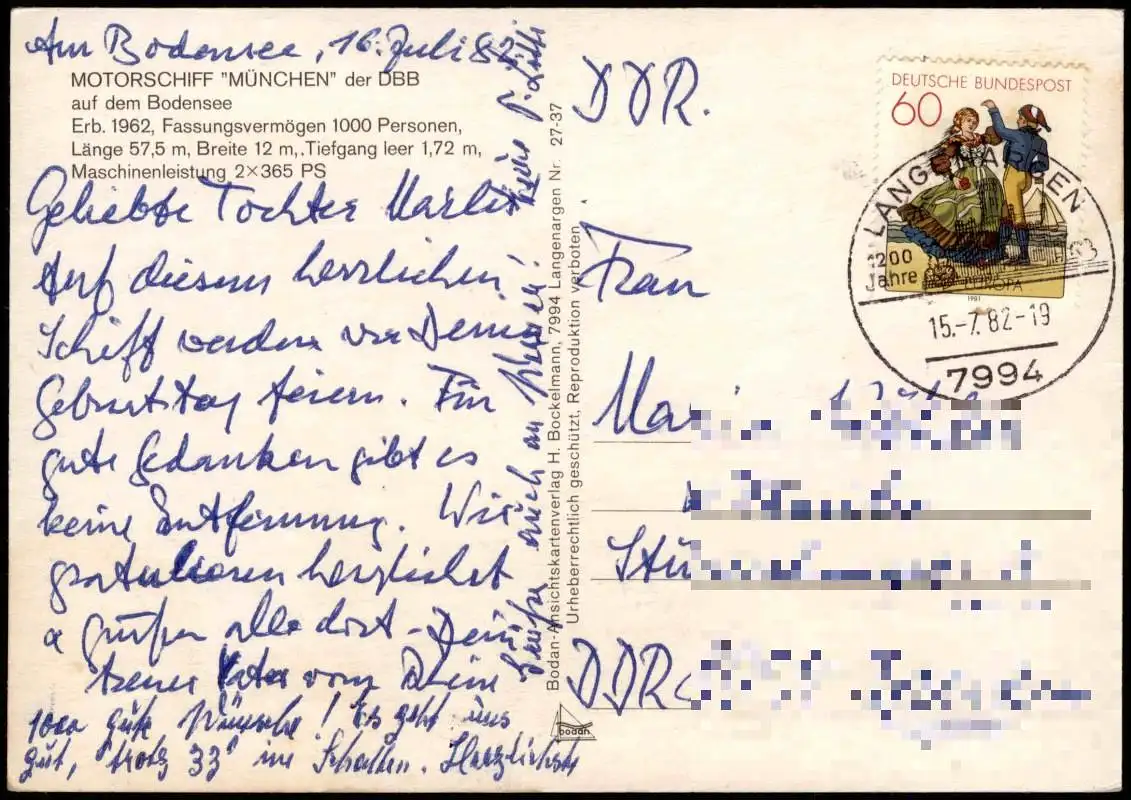 Am Bodensee, 16. Juli 82
MOTORSCHIFF "MÜNCHEN" der DBB
auf dem Bodensee
Erb. 1962, Fassungsvermögen 1000 Personen,
Länge 57,5 m, Breite 12 m, Tiefgang leer 1,72 m,
Maschinenleistung 2×365 PS
Geliebte Tochter
Auf diesem herrlichen
Schiff werden wir Deinen
Geburtstag feiern. Für
gute Gedanken gibt es
keine Entfernung. Wir
gratulieren herzlichst
& grüßen alle dort - Dein
treuer Vater vom Rhein
1000 gute Wünsche! Es geht uns
gut, "trotz 33" im Schatten. Herzlichste
Grüße auch an
Bodan-Ansichtskartenverlag H. Bockelmann, 7994 Langenargen Nr. 27-37
Urheberrechtlich geschützt, Reproduktion verboten
bodan
DDR.
Frau
DDR
DEUTSCHE BUNDESPOST
60
EUROPA
1981
LANGENARGEN
1200
Jahre
15.-7.82-19
7994